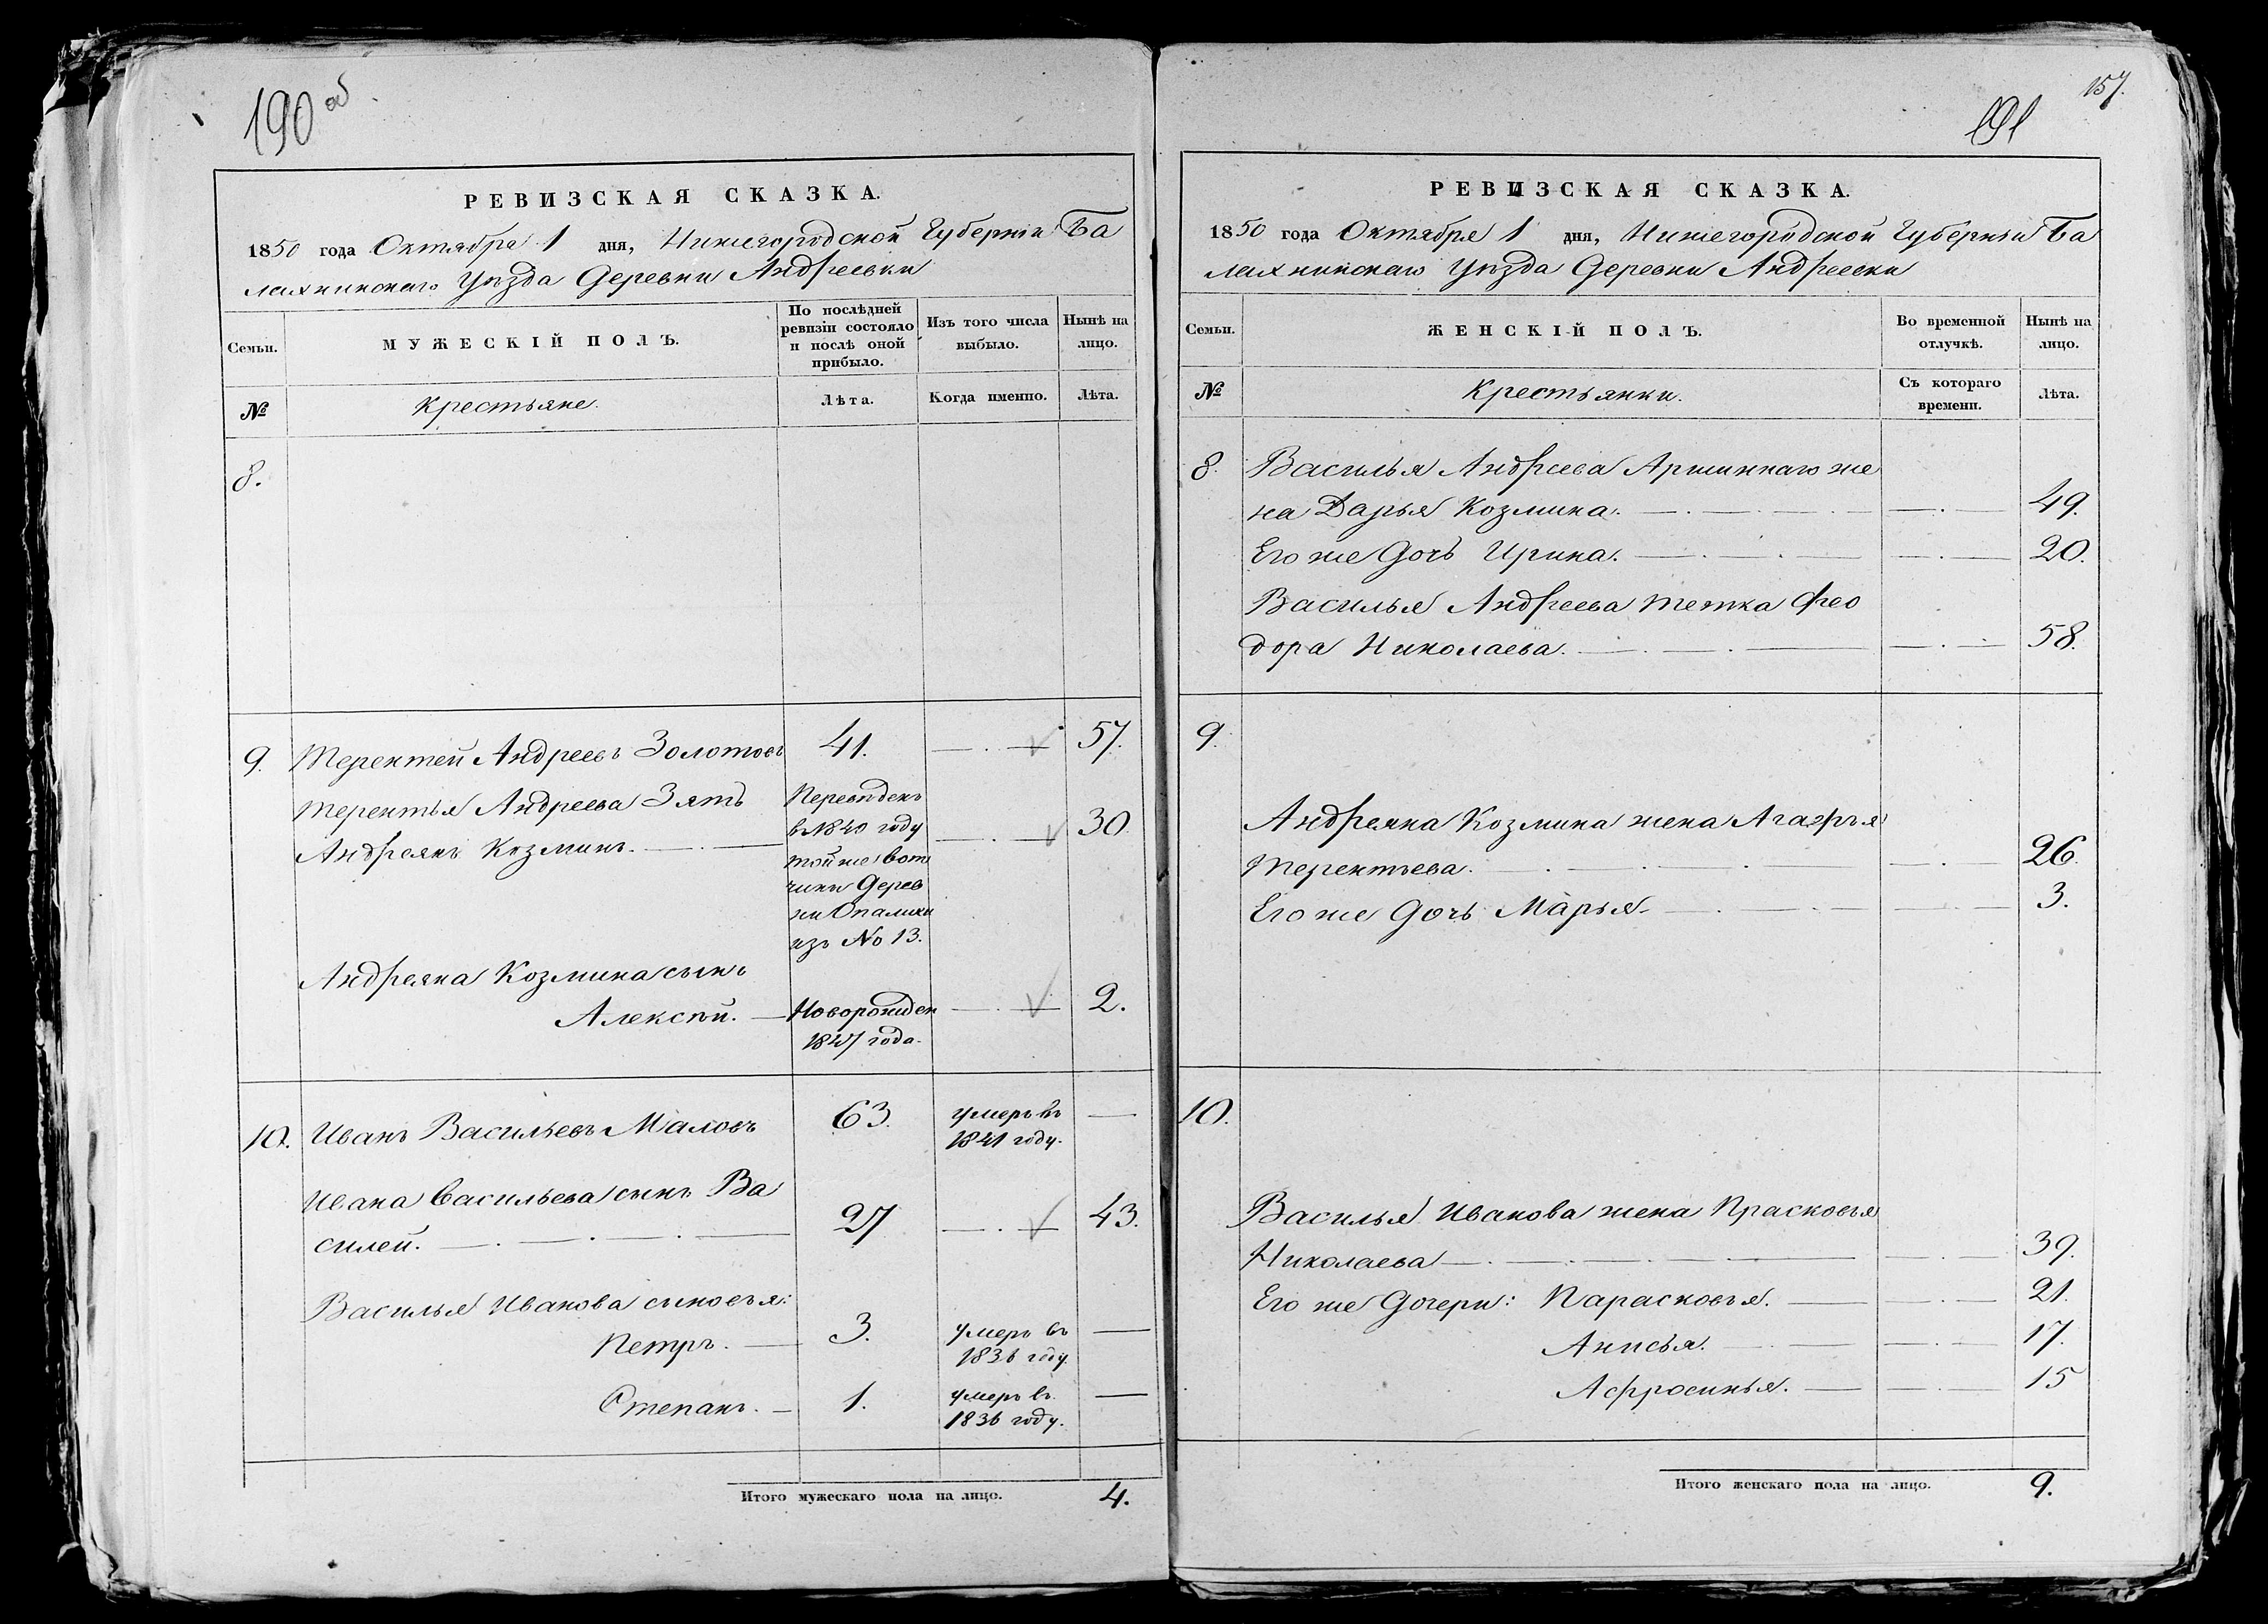 190 об
РЕВИЗСКАЯ СКАЗКА.
1850 года Октября 1 дня, Нижегородской Губерніи Ба
лахнинскаго Уѣзда Деревни Андреевки
Семьи.
МУЖЕСКІЙ ПОЛЪ.
По послѣдней
ревизіи состояло
и послѣ оной
прибыло.
Изъ того числа
выбыло.
Нынѣ на
лицо.
№
Крестьяне.
Лѣта.
Когда именно.
Лѣта.
8.
9. Терентей Андреевъ Золотовъ 41. 57.
Терентья Андреева Зять
Андреянъ Козминъ. 30.
Переведенъ
в 1840 году
той же вот
чины Дерев
ни Опалихи
изъ No 13.
Андреяна Козмина сынъ
Алексѣй. Новорожден 2.
1847 года.
10. Иванъ Васильевъ Маловъ 63. умеръ въ
1841 году.
Ивана Васильева сынъ Ва
силей. 27 43.
Василья Иванова сыновья:
Петръ. 3. умеръ въ
1836 году.
Степанъ. 1. умеръ въ
1836 году.
Итого мужескаго пола на лицо. 4.
157.
191
РЕВИЗСКАЯ СКАЗКА.
1850 года Октября 1 дня, Нижегородской Губерніи Ба
лахнинскаго Уѣзда Деревни Андреевки
Семьи.
ЖЕНСКІЙ ПОЛЪ.
Во временной
отлучкѣ.
Нынѣ на
лицо.
№
Крестьянки.
Съ котораго
времени.
Лѣта.
8. Василья Андреева Аршиннаго же
на Дарья Козмина. 49.
Его же Дочь Ирина. 20.
Василья Андреева тетка Фео
дора Николаева. 58.
9.
Андреяна Козмина жена Агафья
Терентьева. 26.
Его же Дочь Марья. 3.
10.
Василья Иванова жена Прасковья
Николаева 39.
Его же Дочери: Парасковья. 21.
Анисья. 17.
Афросинья. 15
Итого женскаго пола на лицо. 9.